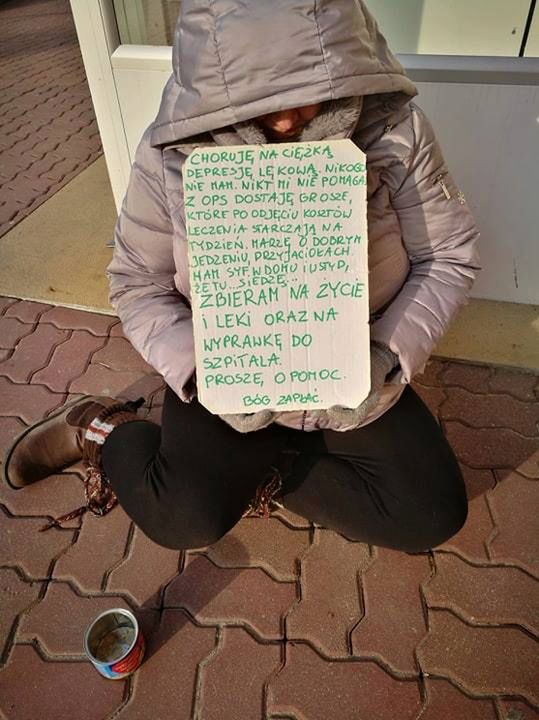 CHORUJĘ NA CIĘŻKĄ
DEPRESJĘ LĘKOWĄ. NIKOGO
NIE MAM. NIKT MI NIE POMAGA.
Z OPS DOSTAJĘ GROSZE,
KTÓRE PO ODJĘCIU KOSZTÓW
LECZENIA STARCZAJĄ NA
TYDZIEŃ. MARZĘ O DOBRYM
JEDZENIU, PRZYJACIOŁACH.
MAM SYF W DOMU I USTYD,
ŻE TU... SIEDZĘ...
ZBIERAM NA ŻYCIE
I LEKI ORAZ NA
WYPRAWKĘ DO
SZPITALA.
PROSZĘ O POMOC.
BÓG ZAPŁAĆ.